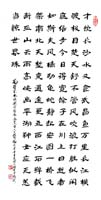 才饮长沙水又食武昌鱼万里长江横
渡极目楚天舒不管风吹浪打胜似闲
庭信步今日得宽余子在川上曰逝者
如斯夫风樯动龟蛇静起宏图一桥飞
架南北天堑变通途更立西江石壁截
断巫山云雨高峡出平湖神女应无恙
当惊世界殊